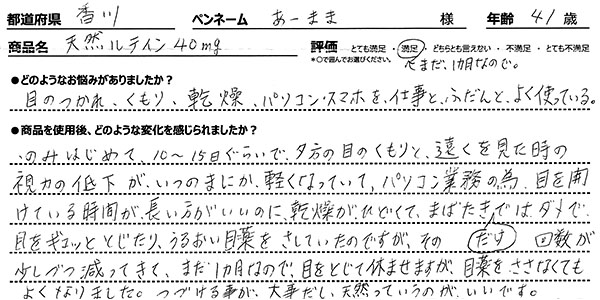 都道府県 香川 ペンネーム あーまま 様 年齢 41 歳
商品名 天然ルテイン40mg 評価 とても満足・満足・どちらとも言えない・不満足・とても不満足
*○で囲んでお選びください。 まだ、1カ月なので。
●どのようなお悩みがありましたか？
目のつかれ、くもり、乾燥、パソコン・スマホを、仕事と、ふだんと、よく使っている。
●商品を使用後、どのような変化を感じられましたか？
のみはじめて、10〜15日ぐらいで、夕方の目のくもりと、遠くを見た時の
視力の低下が、いつのまにか、軽くなっていて、パソコン業務の為、目を開
けている時間が、長い方がいいのに、乾燥がひどくて、まばたきではダメで
目をギュッととじたり、うるおい目薬をさしていたのですが、その だけ 回数が
少しづつ減ってきて、まだ1カ月なので、目をとじて休ませますが、目薬をささなくても
よくなりました。つづける事が、大事だし、天然っていうのが、いいです。